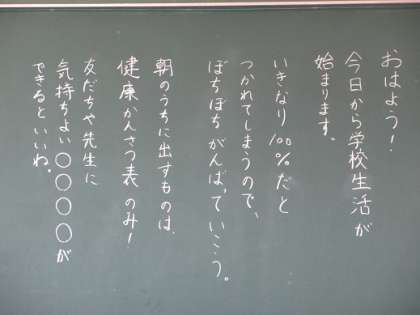 おはよう！
今日から学校生活が
始まります。
いきなり100%だと
つかれてしまうので、
ぼちぼちがんばっていこう。
朝のうちに出すものは、
健康かんさつ表のみ！
友だちや先生に
気持ちよい〇〇〇〇が
できるといいね。